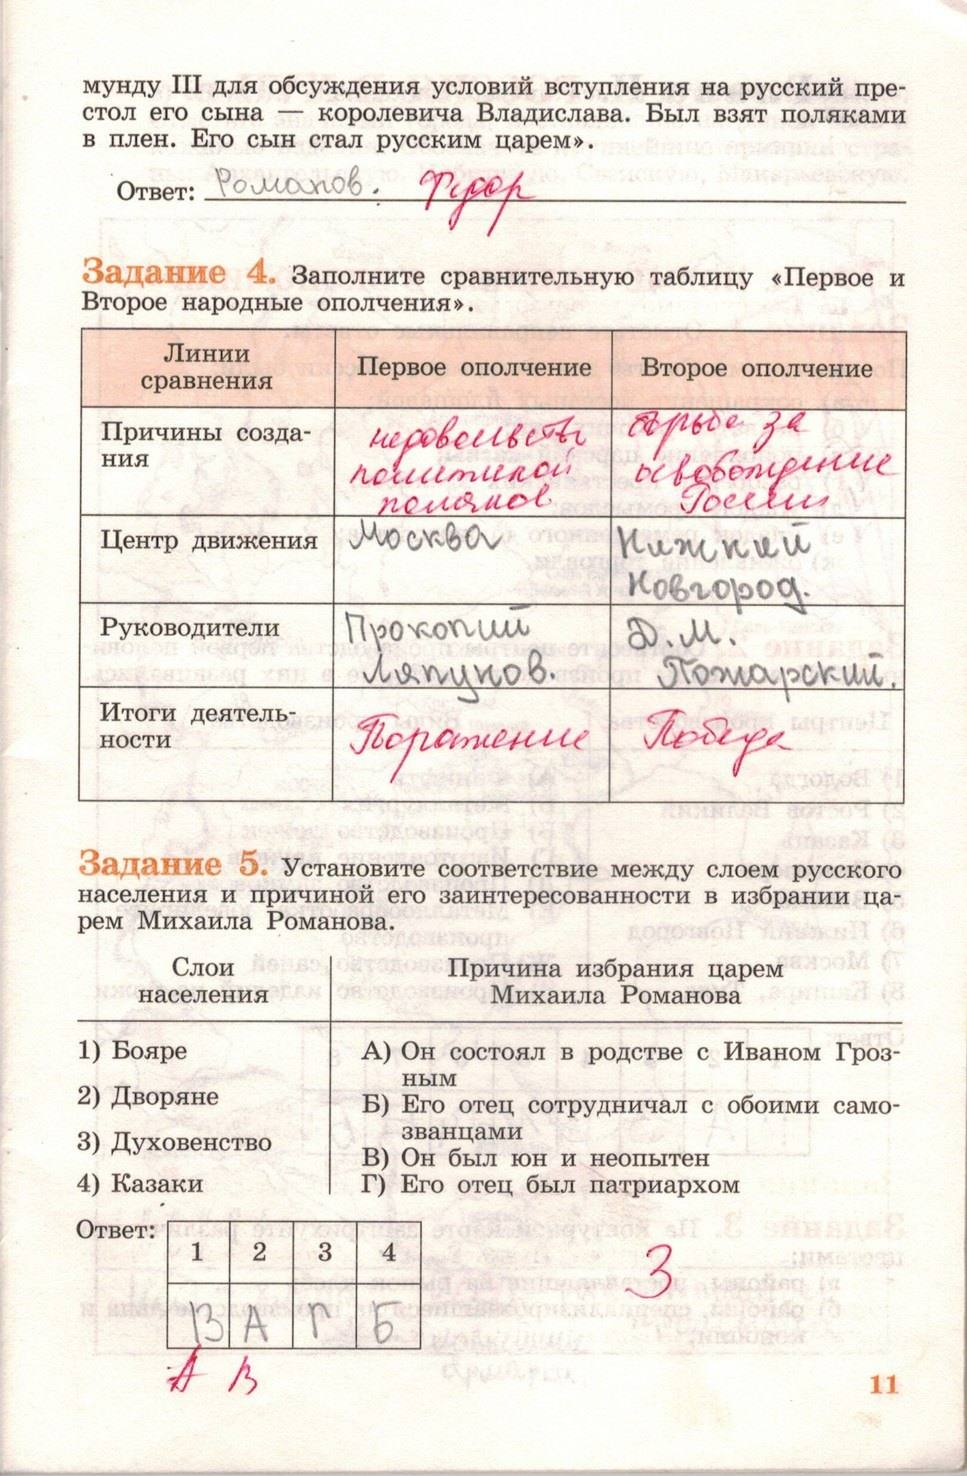 мунду III для обсуждения условий вступления на русский пре-
стол его сына — королевича Владислава. Был взят поляками
в плен. Его сын стал русским царем».
Ответ: Романов. Фёдор
Задание 4. Заполните сравнительную таблицу «Первое и
Второе народные ополчения».
Линии
сравнения
Первое ополчение
Второе ополчение
Причины созда-
ния
недовольство
политикой
поляков
борьба за
освобождение
России
Центр движения
Москва
Нижний
Новгород.
Руководители
Прокопий
Ляпунов.
Д.М.
Пожарский.
Итоги деятель-
ности
Поражение
Победа
Задание 5. Установите соответствие между слоем русского
населения и причиной его заинтересованности в избрании ца-
рем Михаила Романова.
Слои
населения
Причина избрания царем
Михаила Романова
1) Бояре
2) Дворяне
3) Духовенство
4) Казаки
А) Он состоял в родстве с Иваном Гроз-
ным
Б) Его отец сотрудничал с обоими само-
званцами
В) Он был юн и неопытен
Г) Его отец был патриархом
Ответ:
1 2 3 4
В А Г Б
А В
3
11